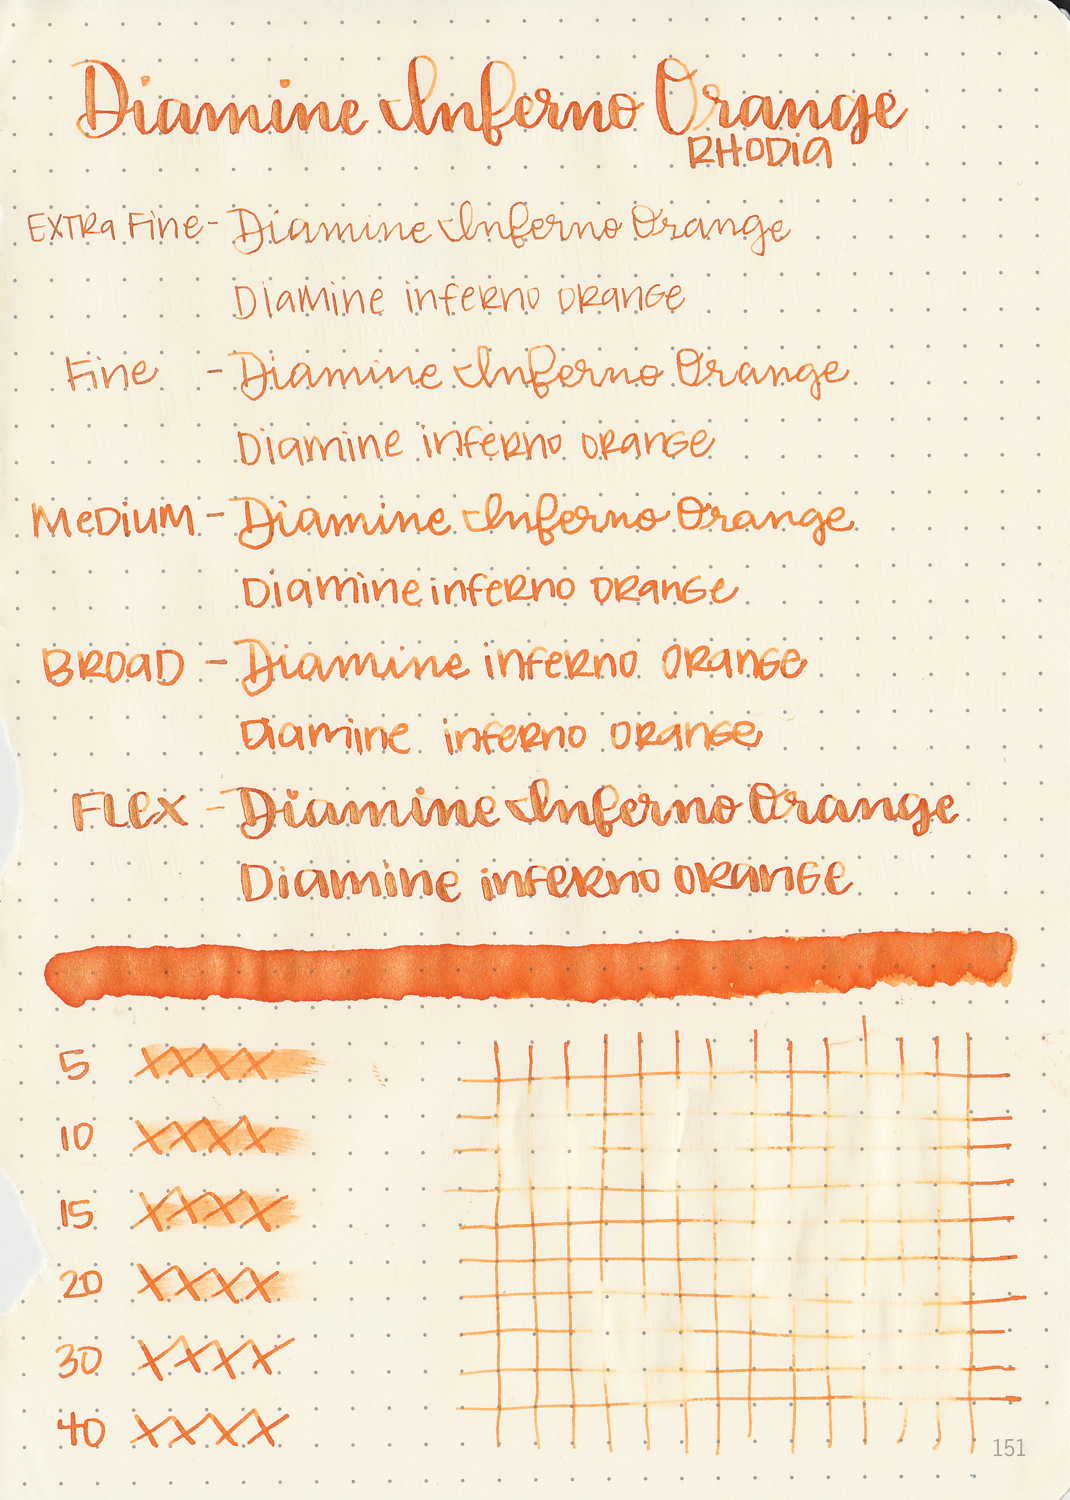 Diamine Inferno Orange
RHODIA
EXTRA FINE - Diamine Inferno Orange
Diamine inferno orange
Fine - Diamine Inferno Orange
Diamine inferno orange
Medium - Diamine Inferno Orange
Diamine inferno orange
BROAD - Diamine inferno orange
Diamine inferno orange
FLEX - Diamine Inferno Orange
Diamine inferno orange
5 XXXX
10 XXXX
15 XXXX
20 XXXX
30 XXXX
40 XXXX
151